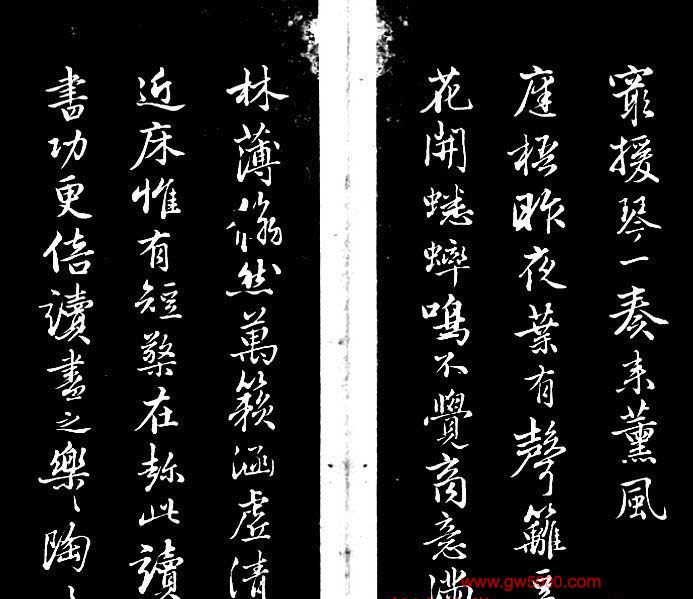 窮援琴一奏來薰風
庭梧昨夜葉有聲籬豆
花開蟋蟀鳴不覺商意滿
林薄翛然萬籟涵虛清
近床惟有短檠在趂此讀
書功更倍讀書之樂〻陶〻
www.gw5000.com